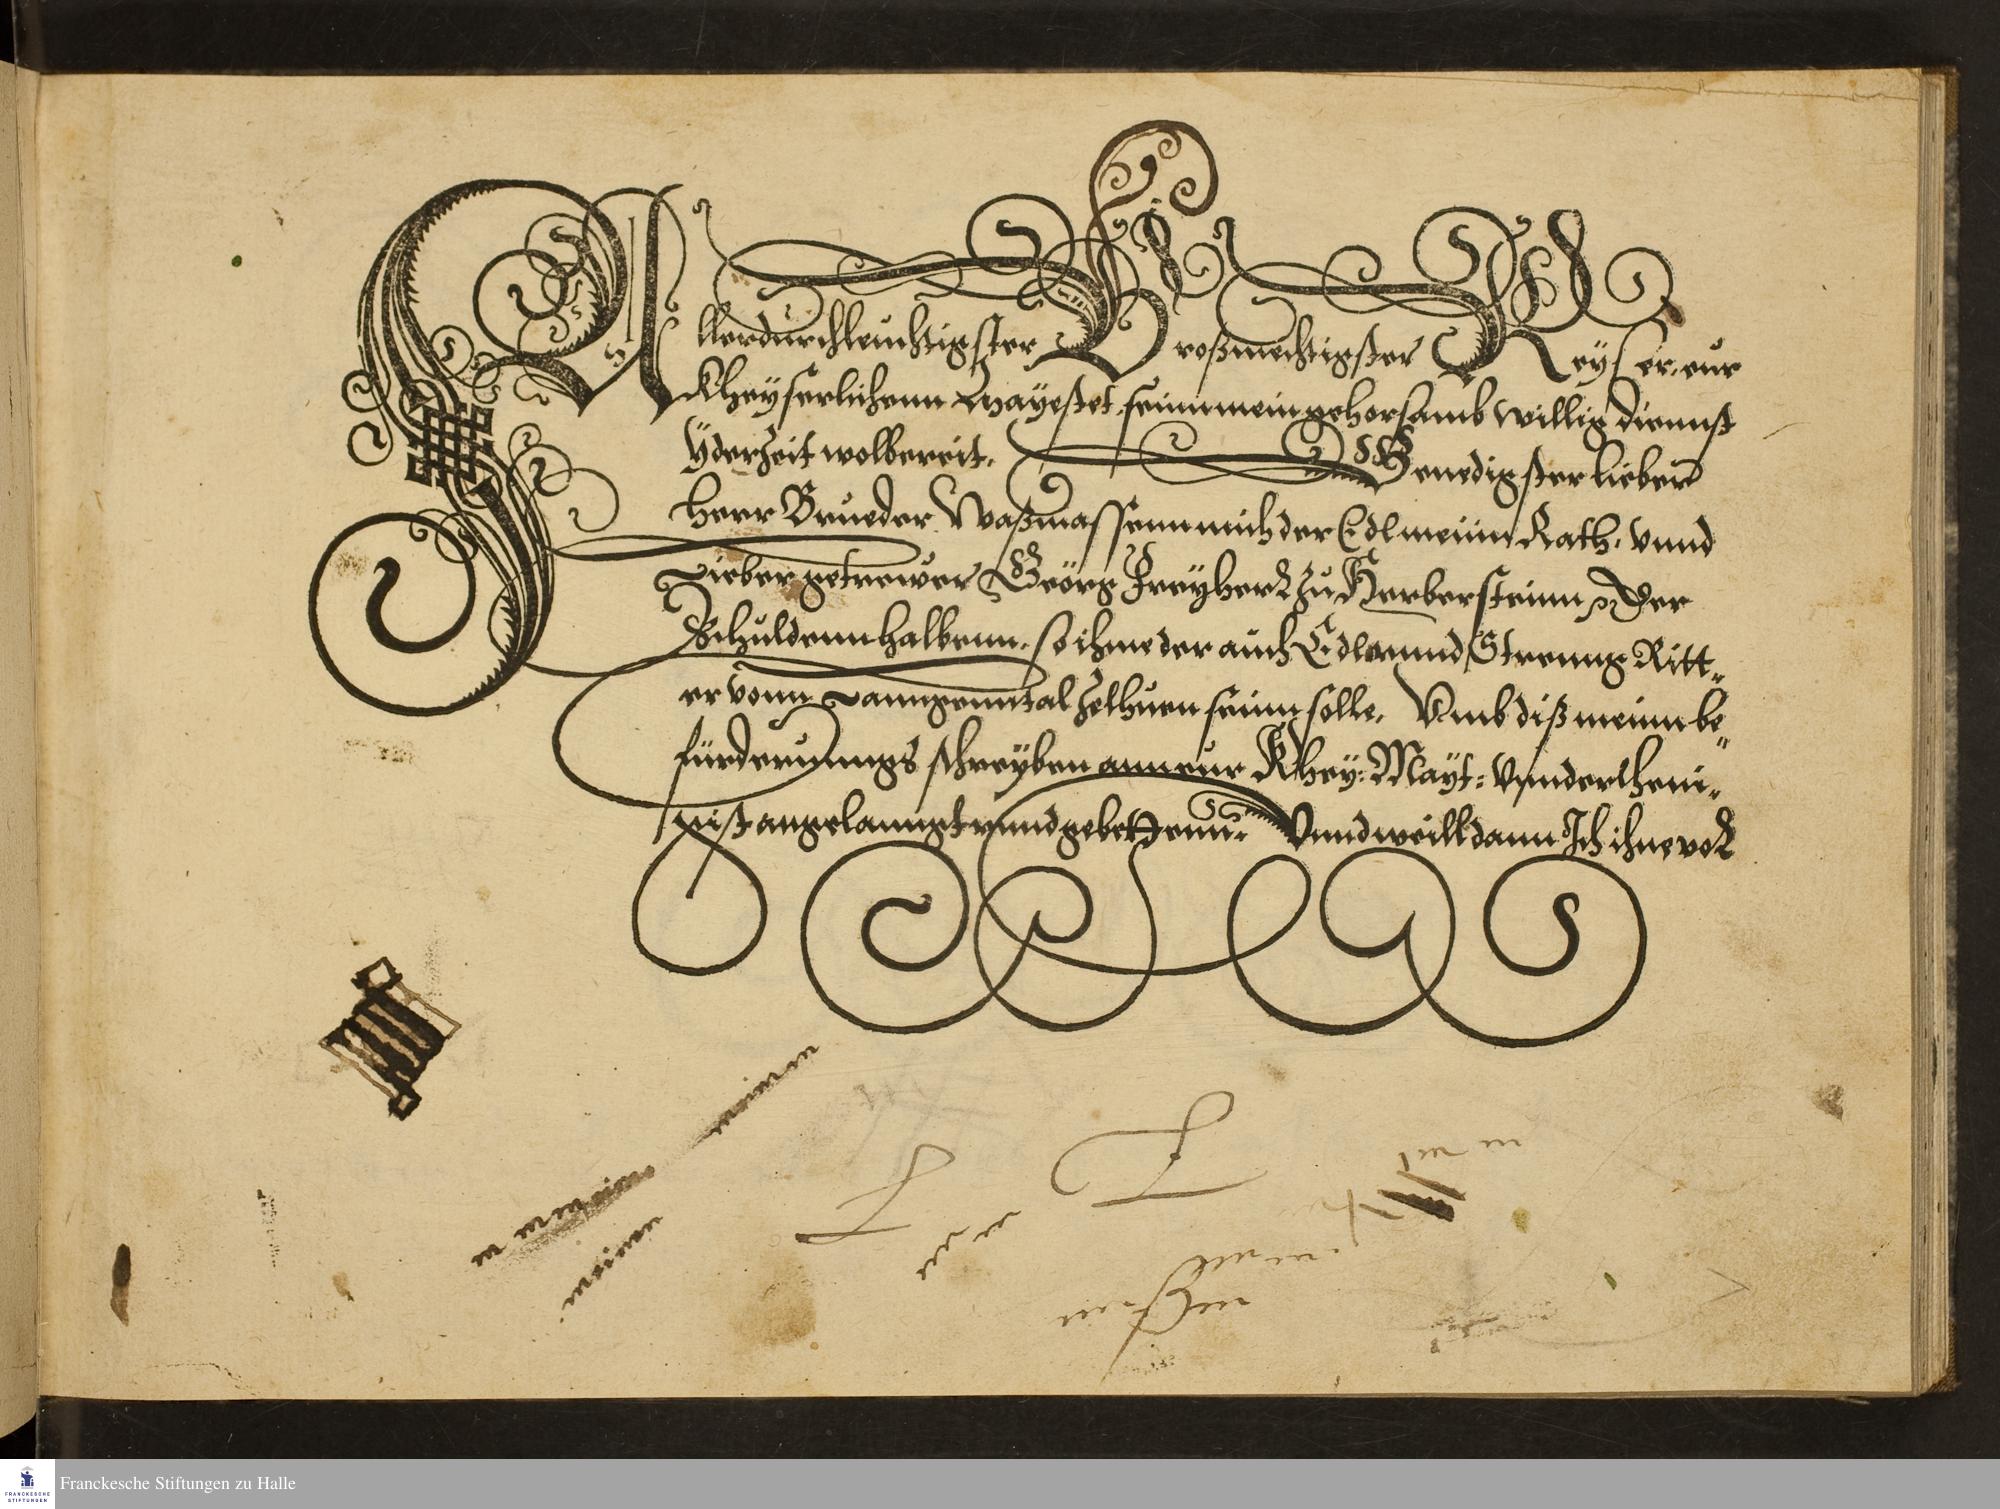 Allerdurchleuchtigster Großmechtigster Keyser, eur
Kheyserlichenn Mayestet seinn mein gehorsamb willig diennst
Yderzeit wolbereit. Genedigster lieber
Herr Brueder, Waßmassenn mich der Edl meinn Rath, vnnd
Lieber getrewer Georg Freyherr zu Herbersteinn, Der
Schuldenn halbenn, so ihme der auch Edl vnnd Streung Ritt-
er vonn Lanngenntal zethuen seinn solle, Vmb diß meinn be-
fürderunngs schreyben ann eur Khey: Mayt: vnndertheni-
gist angelanngt vnnd gebettenn: Vnnd weill dann Ich ihne vor
meinen
meinen
Franckesche Stiftungen zu Halle
FRANCKESCHE
STIFTUNGEN